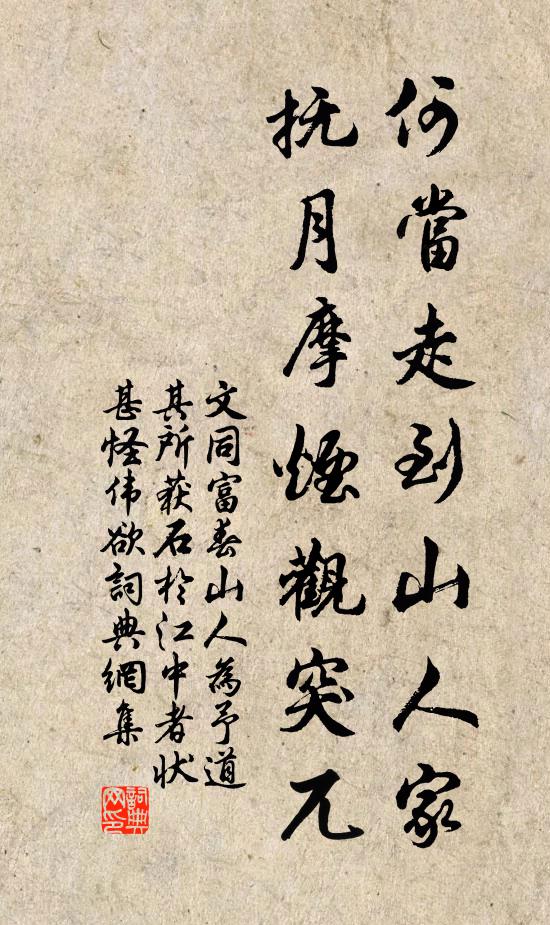 何當走到山人家
抚月摩煙觀突兀
文同富春山人為予道
其所获石於江中者状
甚怪伟欲詞典網集
詞典
网印